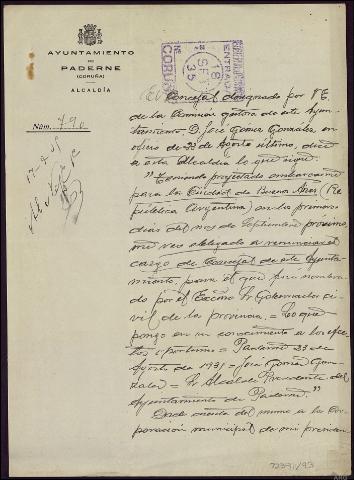 AYUNTAMIENTO
DE
PADERNE
(CORUÑA)
ALCALDÍA
Núm. 790
ENTRADA
18
SET
35
CORUÑA
El Concejal designado por V.E.
de la Comision gestora de este Ayun-
tamiento, D. José Gómez González, en
oficio de 23 de Agosto último, dice
a esta Alcaldia lo que sigue.
"Teniendo proyectado embarcarme
para la Ciudad de Buenos Aires (Re-
pública Argentina) en los primeros
dias del mes de Septiembre próximo,
me veo obligado a renunciar el
cargo de Concejal de este Ayunta-
miento, para el que fui nombra-
do por el Excmo Sr Gobernador ci-
vil de la provincia = Lo que
pongo en su conocimiento a los efec-
tos oportunos = Paderne 23 de
Agosto de 1935 = José Gómez Gon-
zález = Sr Alcalde Presidente del
Ayuntamiento de Paderne."
Dada cuenta del mismo a la Cor-
poración municipal de mi presiden-
12391/93